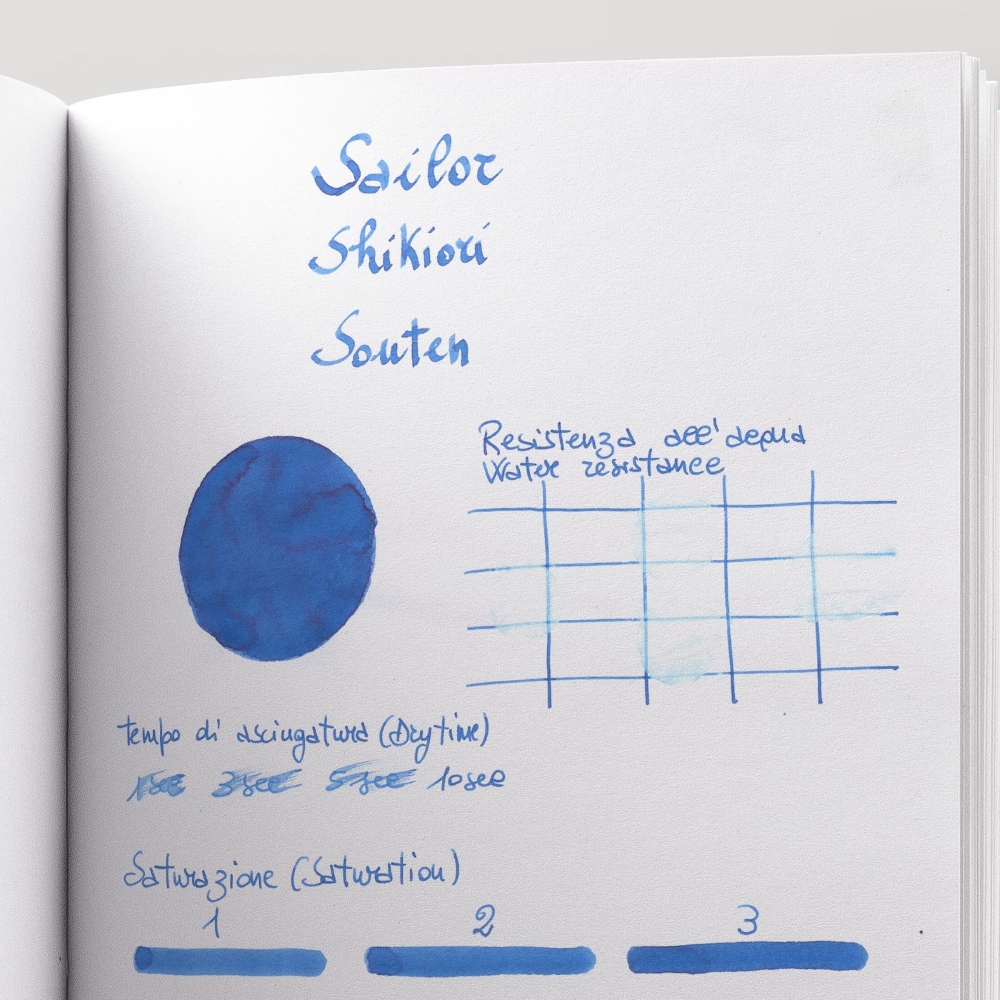 Sailor
Shikiori
Souten
Resistenza all'acqua
Water resistance
tempo di asciugatura (Dry time)
1sec 3sec 5sec 10sec
Saturazione (Saturation)
1 2 3